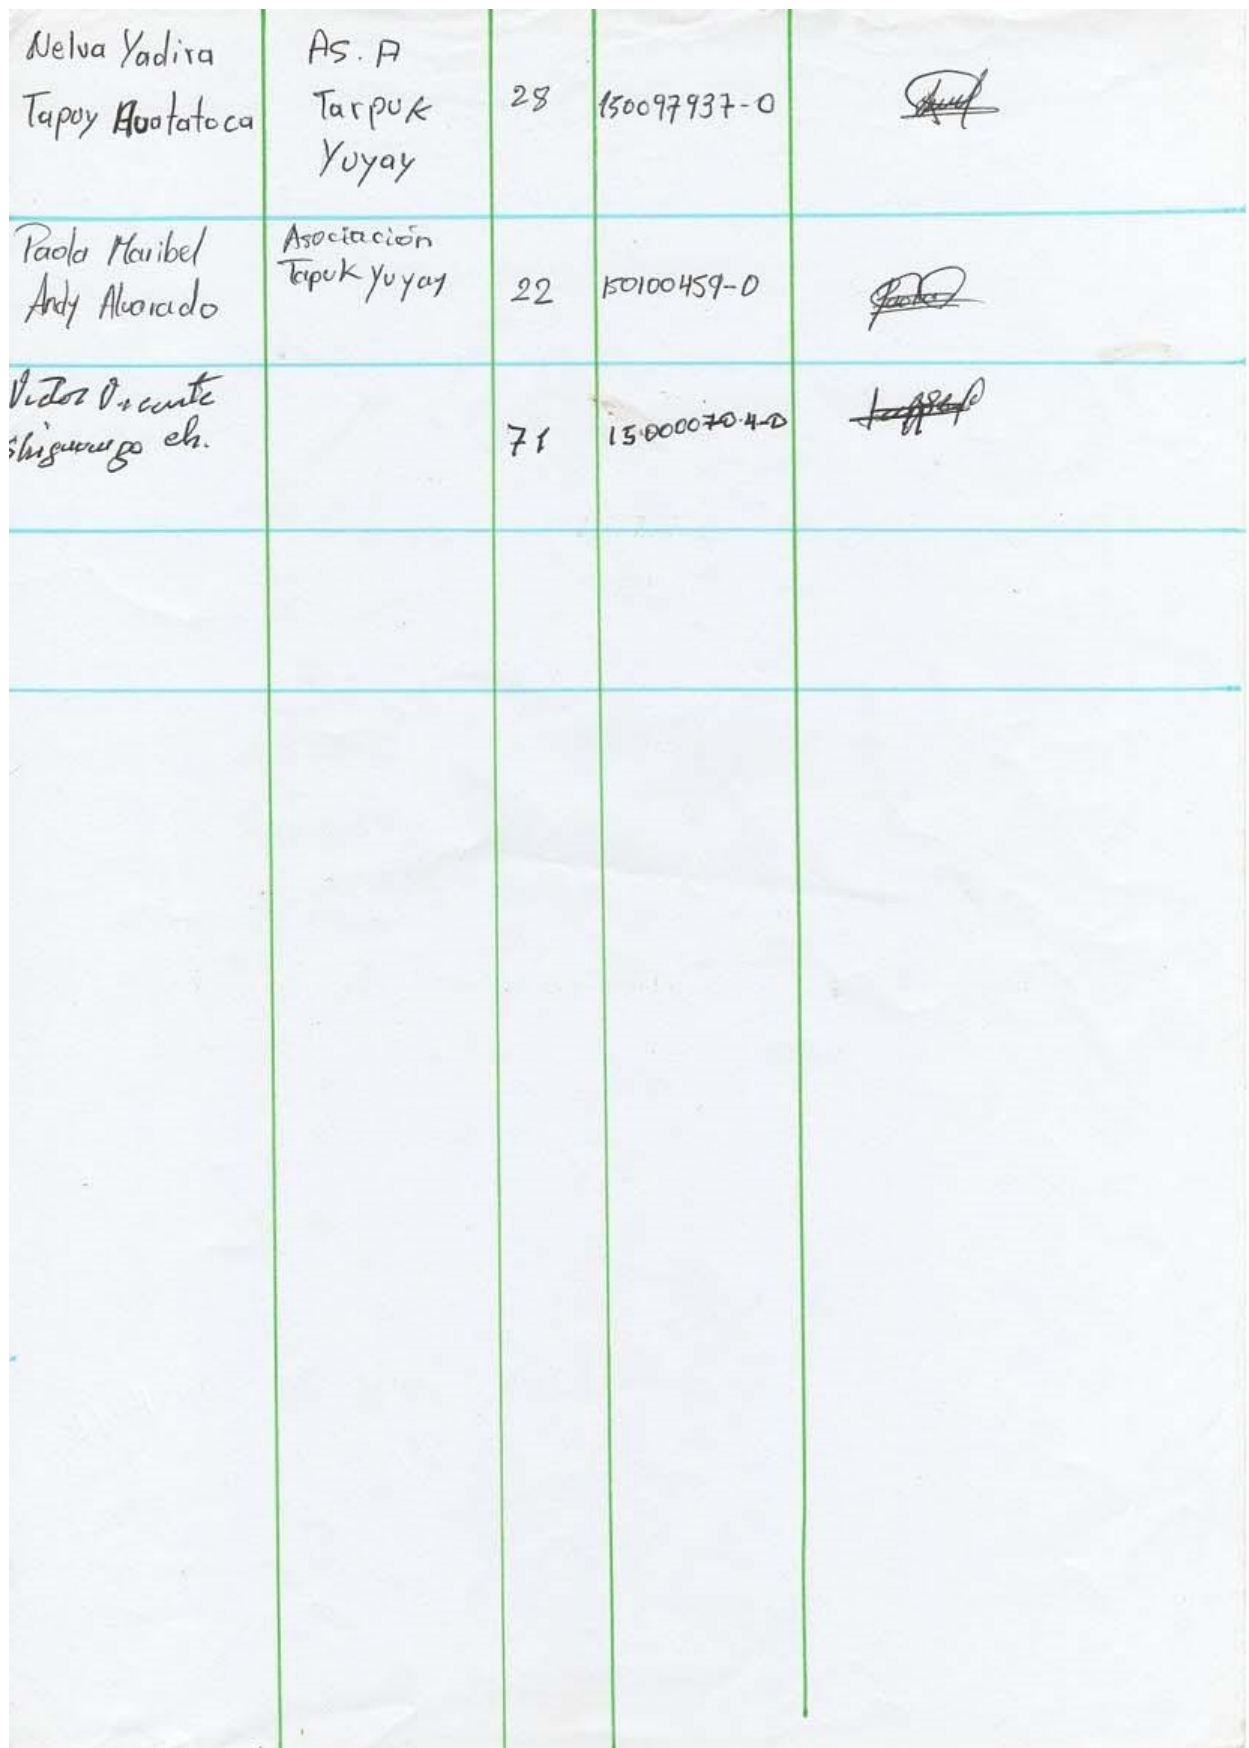 Nelva Yadira
Tapuy Huatatoca
As. A
Tarpuk
Yuyay
28
150097937-0
Paola Maribel
Andy Alvarado
Asociación
Tapuk Yuyay
22
150100459-0
Victor Vicente
Shiguango ch.
71
15000070.4-0